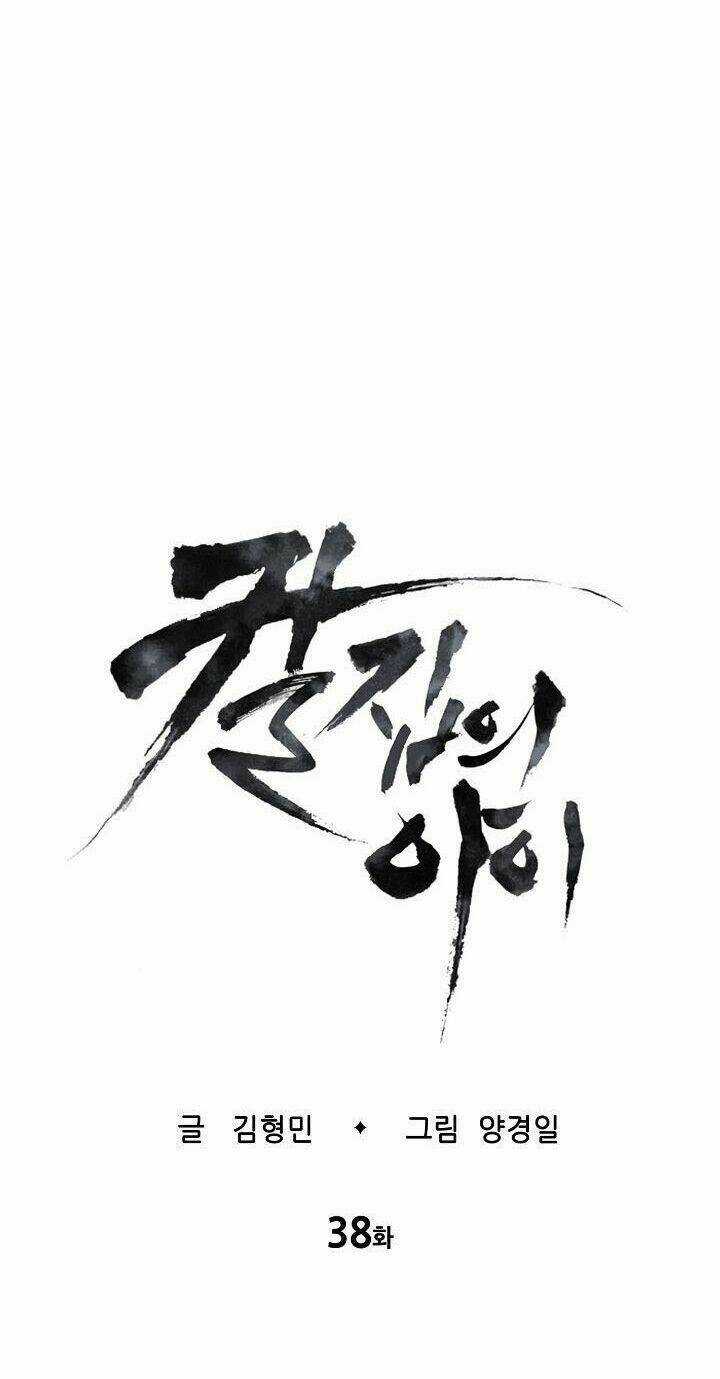 칼집의
아이
글 김형민 ✦ 그림 양경일
38화